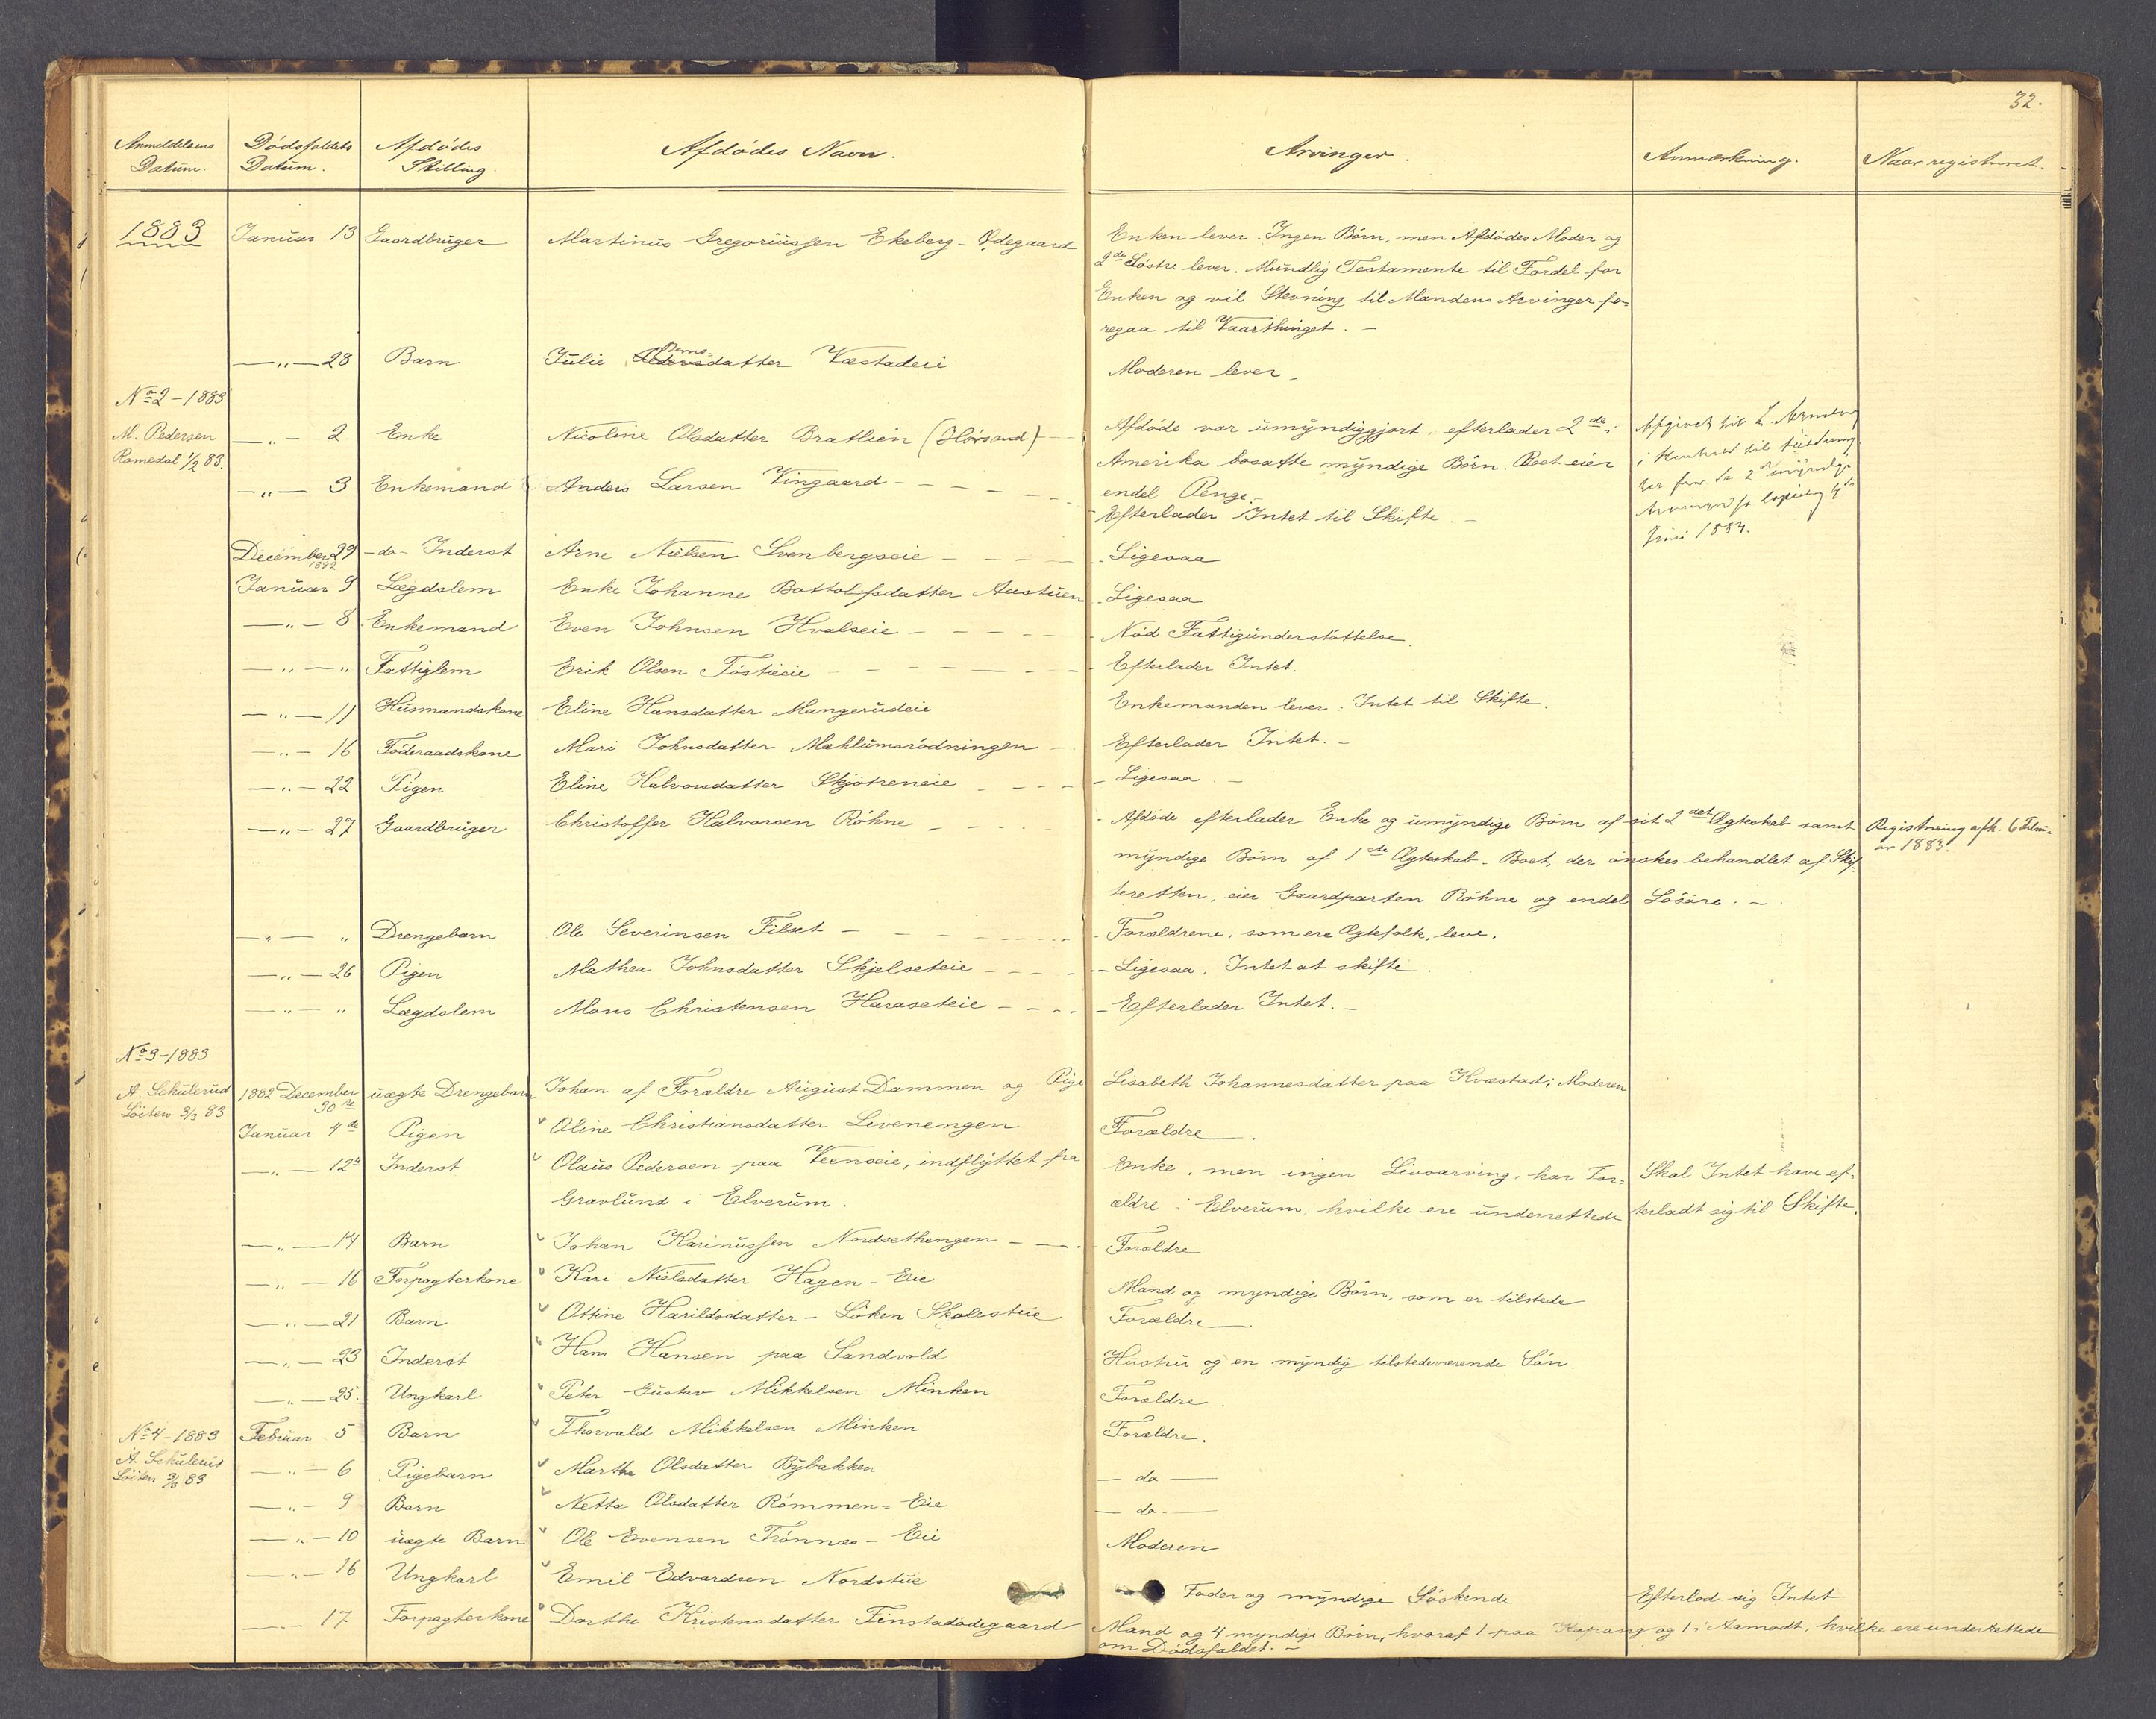 32.
Anmeldelsens Datum. Dödsfaldets Datum. Afdödes Stilling. Afdödes Navn. Arvinger. Anmærkning. Naar registreret.
1883 Januar 13 Gaardbruger Martinus Gregoriussen Ekeberg-Ödegaard Enken lever. Ingen Börn, men Afdödes Moder og
2de Söstre lever. Mundlig Testamente til Fordel for
Enken og vil Stevning til Mandens Arvinger fo-
regaa til Vaarthinget. -
—„—28 Barn Julie Bernsdatter Væstadeie Moderen lever.
No 2-1883
M. Pedersen —„— 2 Enke Nicoline Olsdatter Bratlien (Hörsand) Afdöde var umyndiggjort, efterlader 2de i
Romedal 1/2 83. Amerika bosatte myndige Börn. Boet eier
endel Penge.-
—„— 3 Enkemand Anders Larsen Vingaard Efterlader Intet til Skifte. -
Juni 1884.
December 29 1882 -do- Inderst Arne Nielsen Svenbergseie Ligesaa
Januar 9 Lægdslem Enke Johanne Bottolfsdatter Aastuen Ligesaa
—„— 8 Enkemand Even Johnsen Hvalseie Nöd Fattigunderstöttelse.
—„—„ Fattiglem Erik Olsen Töstieie Efterlader Intet.
—„—11 Husmandskone Eline Hansdatter Mangerudeie Enkemanden lever. Intet til Skifte.
—„— 16 Föderaadskone Mari Johnsdatter Mæhlumsrödningen Efterlader Intet. -
—„— 22 Pigen Eline Halvorsdatter Skjötreneie Ligesaa. -
—„— 27 Gaardbruger Christoffer Halvorsen Röhne Afdöde efterlader Enke og umyndige Börn af sit 2det Ægteskab samt Registrering afh. 6 Febru-
myndige Börn af 1ste Ægteskab. Boet, der önskes behandlet af Skif- ar 1883.
teretten, eier Gaardparten Röhne og endel Lösöre. -
—„— „ Drengebarn Ole Severinsen Filset Forældrene, som ere Ægtefolk, leve.
—„— 26 Pigen Mathea Johnsdatter Skjelseteie Ligesaa. Intet at skifte.
—„— „ Lægdslem Mons Christensen Haraseteie Efterlader Intet. -
No 3-1883
A. Schulerud 1882 December 30te uægte Drengebarn Johan af Forældre August Dammen og Pige Lisabeth Johannesdatter paa Kvæstad; Moderen
Löiten 3/3 83
Januar 4de Pigen Oline Christiansdatter Livenengen Forældre.
—„— 12te Inderst Olaus Pedersen paa Veenseie, indflyttet fra Enke, men ingen Livsarving, har For- Skal Intet have ef-
Gravlund i Elverum. ældre i Elverum, hvilke ere underrettede terladt sig til Skifte.
—„—14 Barn Johan Karinussen Nordsethengen Forældre
—„— 16 Forpagterkone Kari Nielsdatter Hagen-Eie Mand og myndige Börn, som er tilstede
—„—21 Barn Ottine Haraldsdatter - Löken Skolestue Forældre.
—„—23 Inderst Hans Hansen paa Sandvold Hustru og en myndig tilstedeværende Sön.
—„—25. Ungkarl Peter Gustav Mikkelsen Minken Forældre.
No 4-1883 Februar 5 Barn Thorvald Mikkelsen Minken Forældre.
A. Schulerud —„— 6 Pigebarn Marthe Olsdatter Bybakken — do —
Löiten 3/3 83
—„— 9 Barn Netta Olsdatter Römmen-Eie — do. —
—„— 10 uægte Barn Ole Evensen Frönnæs-Eie Moderen
—„— 16 Ungkarl Emil Edvardsen Nordstue Fader og myndige Söskende Efterlod sig Intet
—„— 17 Forpagterkone Dorthe Kristensdatter Finstadödegaard Mand og 4 myndige Börn, hvoraf 1 paa Kopang og 1 i Aamodt, hvilke ere underrettede
om Dödsfaldet. -